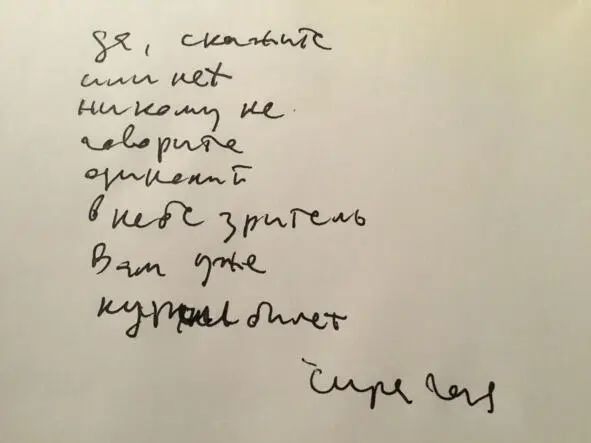 да, скажите
или нет
никому не
говорите
одинокий
в небе зритель
Вам уже
купил билет